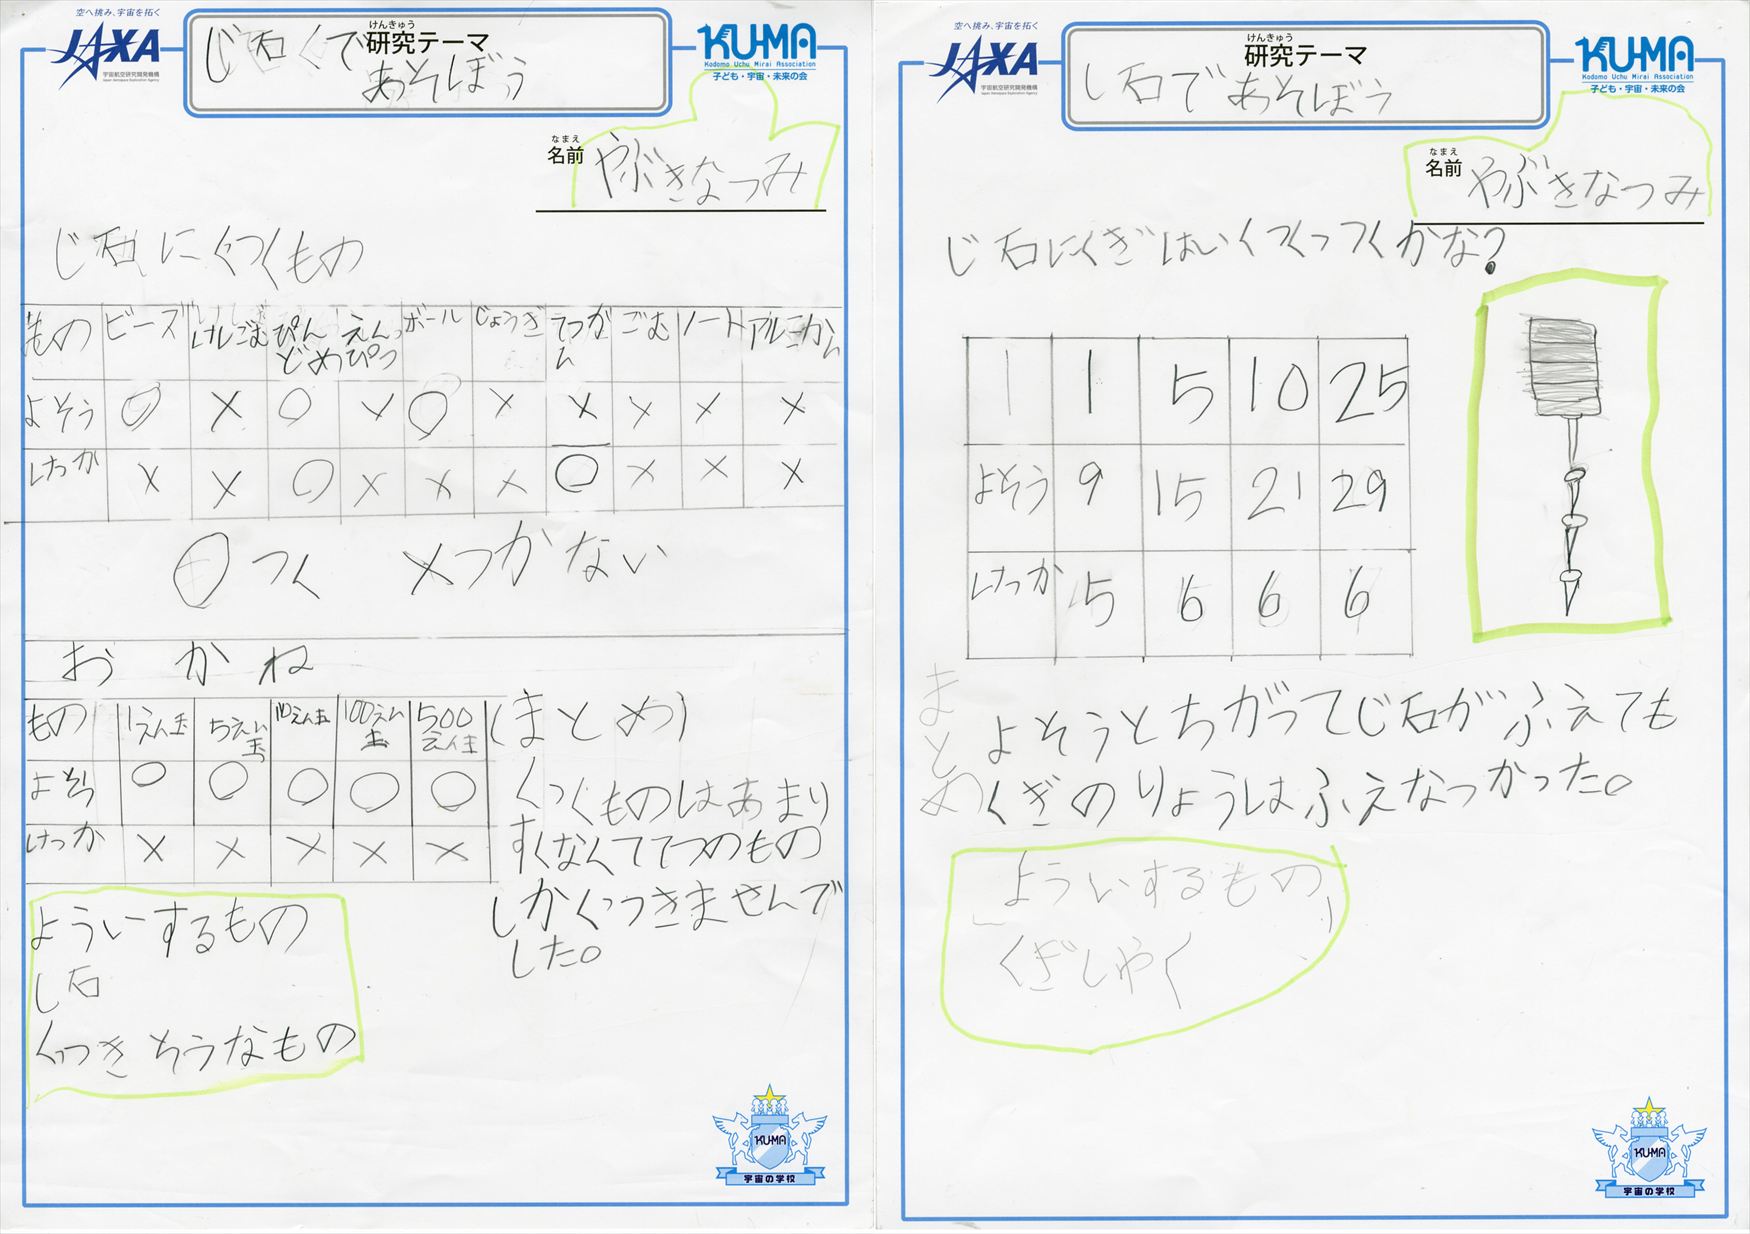 空へ挑み、宇宙を拓く
JAXA
宇宙航空研究開発機構
Japan Aerospace Exploration Agency
けんきゅう
研究テーマ
じ石くで
あそぼう
KU-MA
Kodomo Uchu Mirai Association
子ども・宇宙・未来の会
なまえ
名前 やぶきなつみ
じ石にくつくもの
もの ビーズ けしごむ ぴんどめ えんぴつ ボール じょうぎ てつがん ごむ ノート アルミかん
よそう ○ × ○ × ○ × × × × ×
けっか × × ○ × × × ○ × × ×
○つく ×つかない
おかね
もの 1えん玉 5えん玉 10えん玉 100えん玉 500えん玉
よそう ○ ○ ○ ○ ○
けっか × × × × ×
(まとめ)
くっくものはあまり
すくなくててつのもの
しかくっつきませんで
した。
よういーするもの
し石
くっつきそうなもの
KU-MA
宇宙の学校
空へ挑み、宇宙を拓く
JAXA
宇宙航空研究開発機構
Japan Aerospace Exploration Agency
けんきゅう
研究テーマ
し石であそぼう
KU-MA
Kodomo Uchu Mirai Association
子ども・宇宙・未来の会
なまえ
名前 やぶきなつみ
じ石にくぎはいくつくっつくかな?
1 1 5 10 25
よそう 9 15 21 29
けっか 5 6 6 6
まとめ
よそうとちがってじ石がふえても
くぎのりょうはふえなっかった。
よういするもの
くぎじしゃく
KU-MA
宇宙の学校